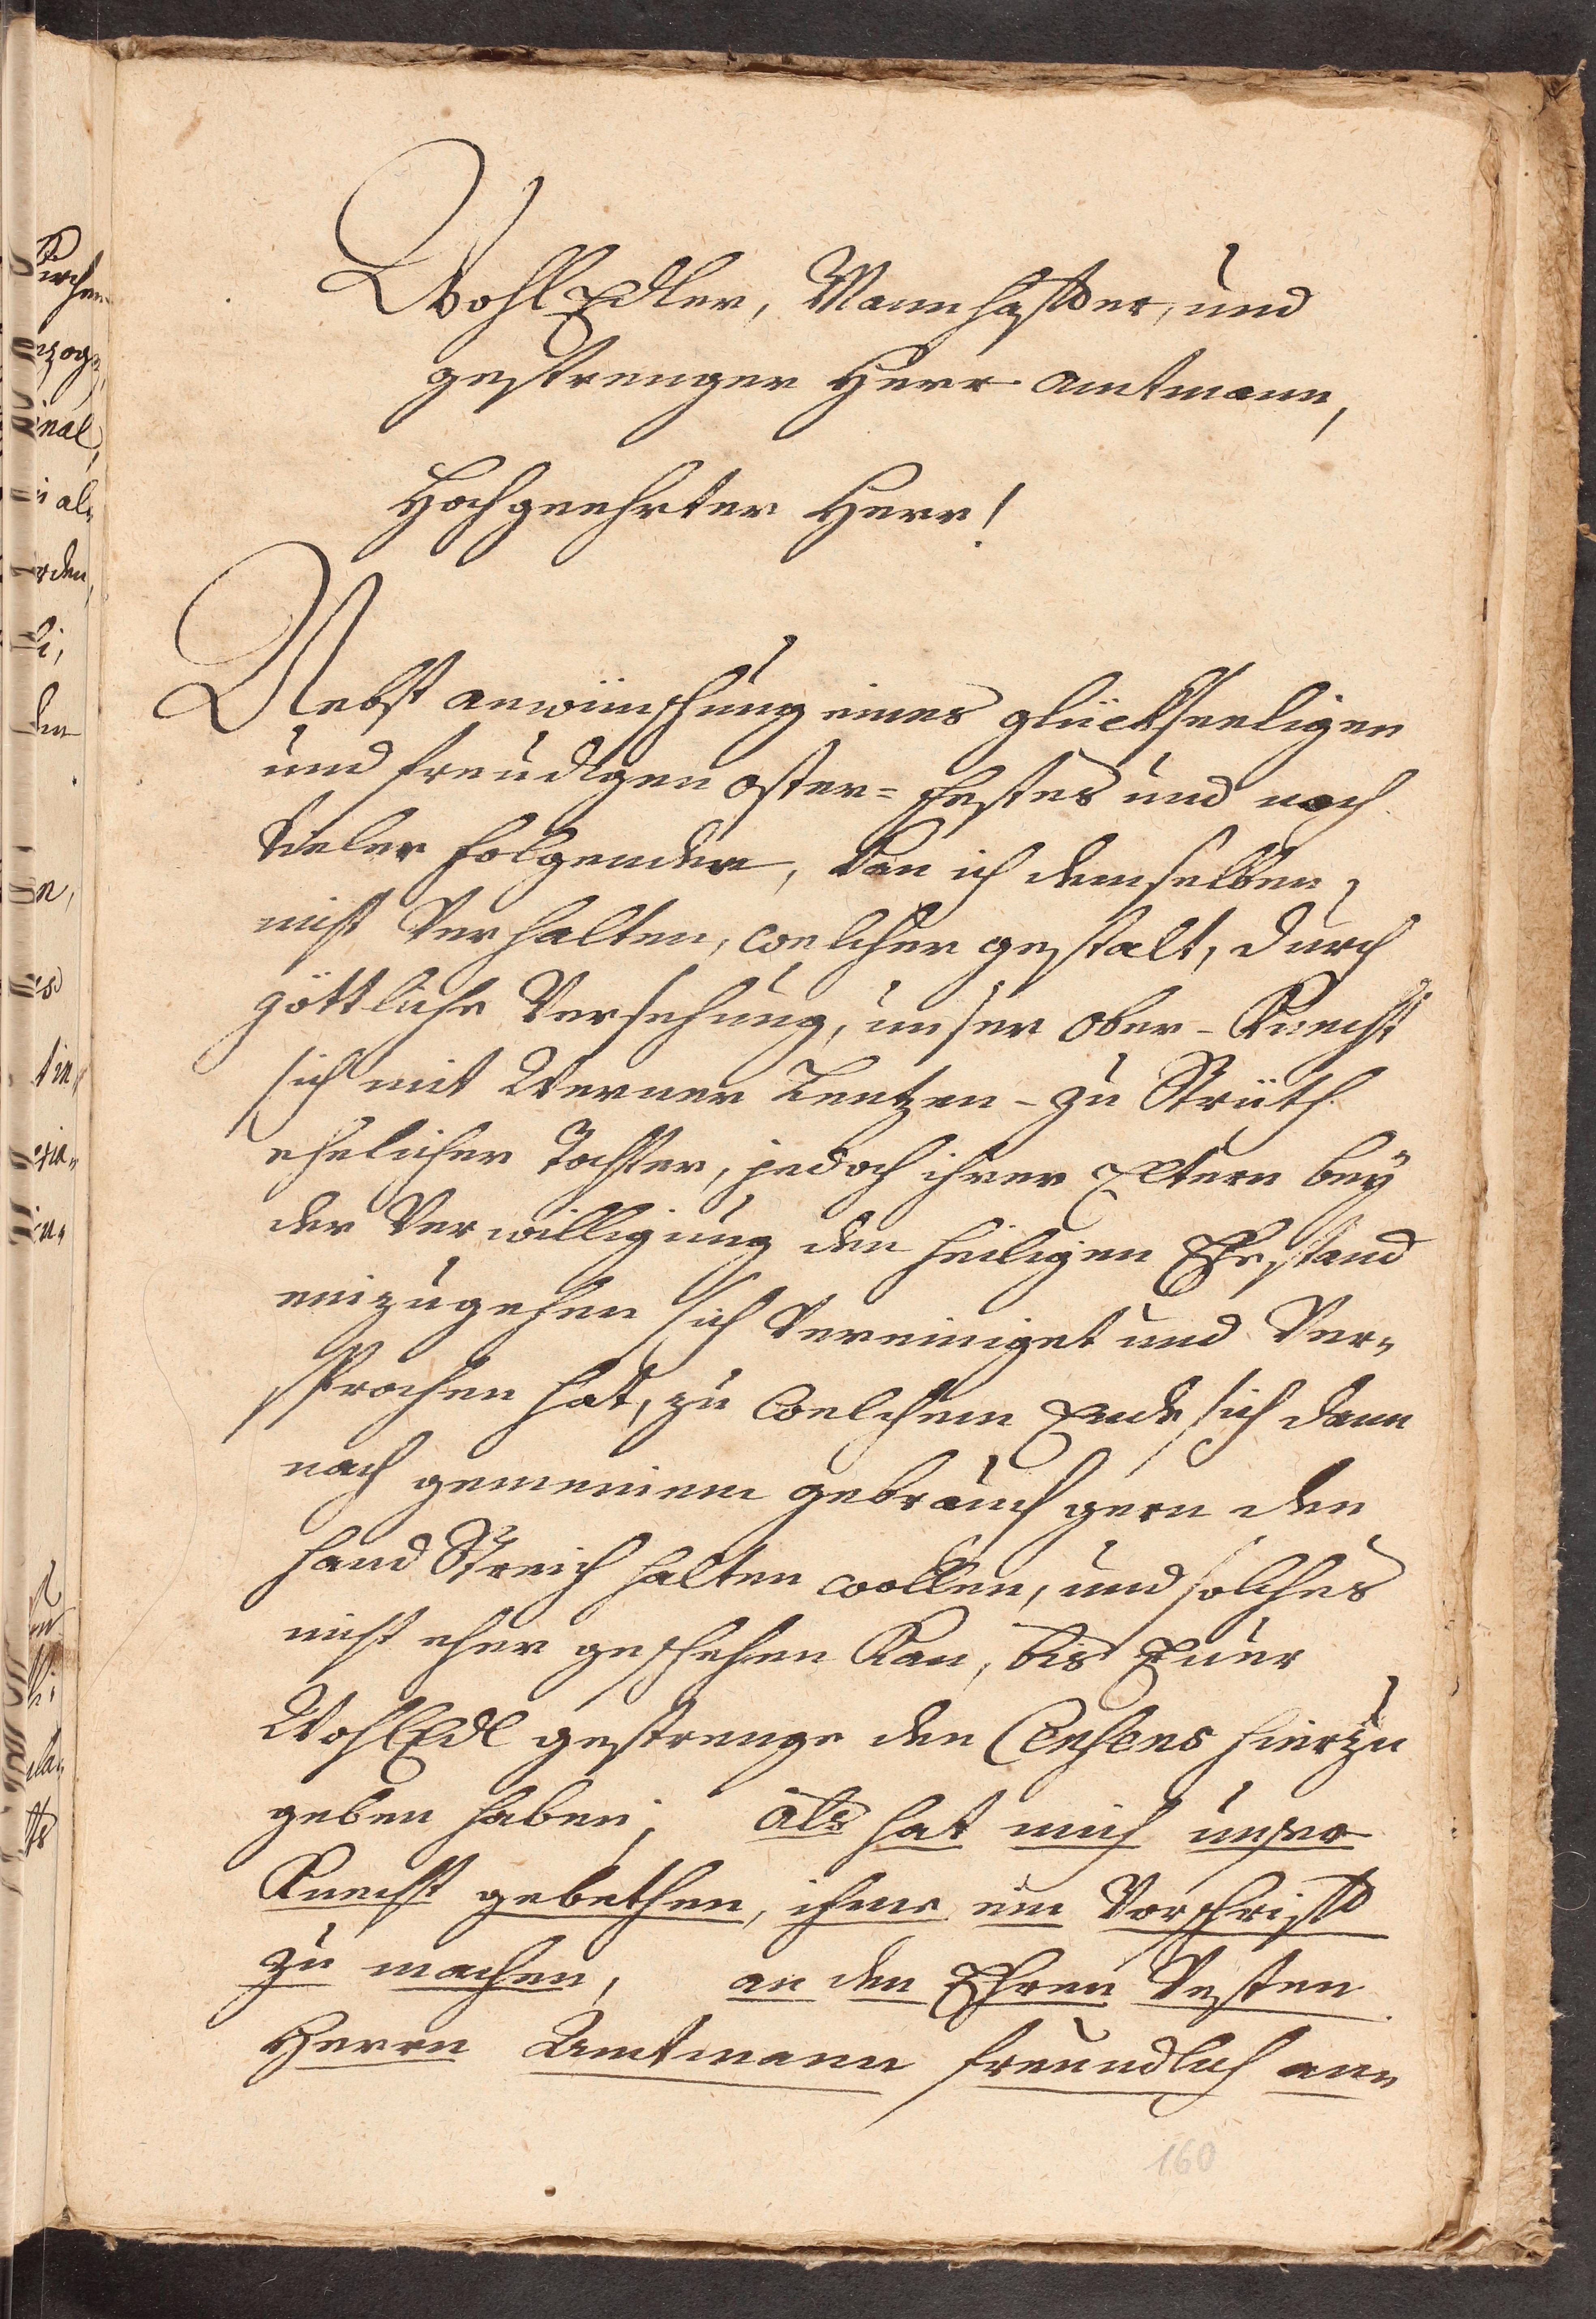 Wohl Edler, Mannhaffter, und
gestrenger Herr Amtmann,
Hochgeehrter Herr!
Nebst anwünschung eines glückseeligen
und freudigen Oster= Festes und noch
Vieler folgenden, kan ich demselben
nicht Verhalten, welcher gestalt, durch
göttliche Versehung, unser Ober-Knecht
sich mit Werner Lentzen - zu Strüth
ehelicher Tochter, jedoch ihrer Eltern bey
der Verwilligung den heiligen Ehestand
einzugehen sich Vereiniget und Ver„
sprochen hat, zu welchem Ende sich dann
nach gemeinem gebrauch gern den
Hand Streich halten wollen, und solches
nicht eher geschehen kan, bis Euer
WohlEdl gestrenge den Censens hierzu
geben haben; Als hat mich unser
Knecht gebethen, ihme ein Vorschrifft
zu machen, an den Ehren Vesten
Herrn Amtmann freundlich ann
160
Kirchen
nal,
al„
den